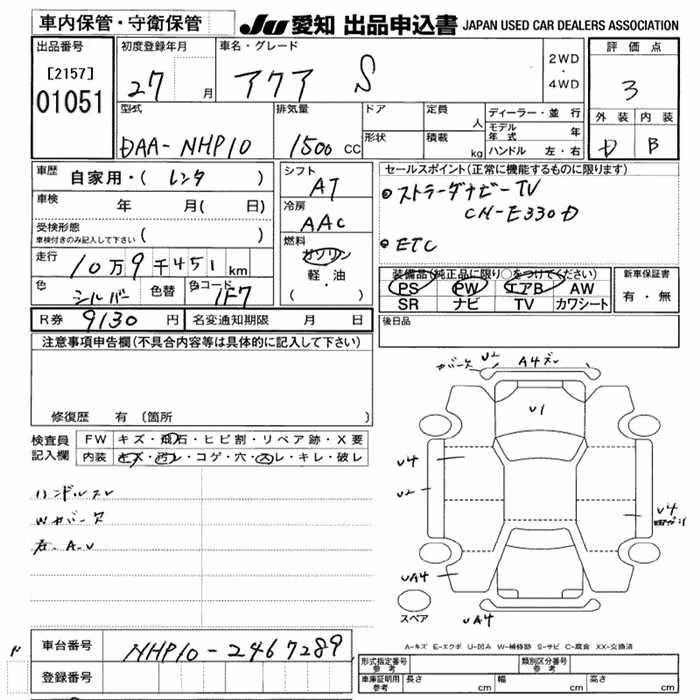 車内保管・守衛保管
JU 愛知 出品申込書 JAPAN USED CAR DEALERS ASSOCIATION
出品番号
[2157]
01051
初度登録年月
27 月
車名・グレード
アクア S
2WD
・
4WD
評価点
3
外装 内装
D B
型式
DAA-NHP10
排気量
1500 CC
ドア
形状
定員 人
積載 kg
ディーラー・並行
モデル年式 年
ハンドル 左・右
車歴 自家用・( レンタ )
車検 年 月( 日)
受検形態
車検付きのみ記入して下さい ( )
走行 10万9千451km
色 シルバー 色替 色コード 1F7
シフト
AT
冷房
AAC
燃料
ガソリン
軽・油
( )
セールスポイント(正常に機能するものに限ります)
ストラーダナビーTV
CN-E330D
ETC
装備品(純正品に限り○をつけてください)
PS PW エアB AW
SR ナビ TV カワシート
新車保証書
有・無
R券 9130 円 名変通知期限 月 日
後日品
注意事項申告欄(不具合内容等は具体的に記入して下さい)
修復歴 有 〔箇所 〕
検査員
記入欄
FW キズ・飛石・ヒビ割・リペア跡・X要
内装 キズ・汚レ・コゲ・穴・スレ・キレ・破レ
ハンドルスレ
Wカバース
A.U
カバース U2 A4スレ
U1
U4
U2
U4
UA4
UA4
スペア
A-キズ E-エクボ U-凹み W-補修跡 S-サビ C-腐食 XX-交換済
車台番号 NHP10-2467289
登録番号
形式指定番号 参考
類別区分番号 参考
車庫証明用 参考 長さ cm 幅 cm 高さ cm